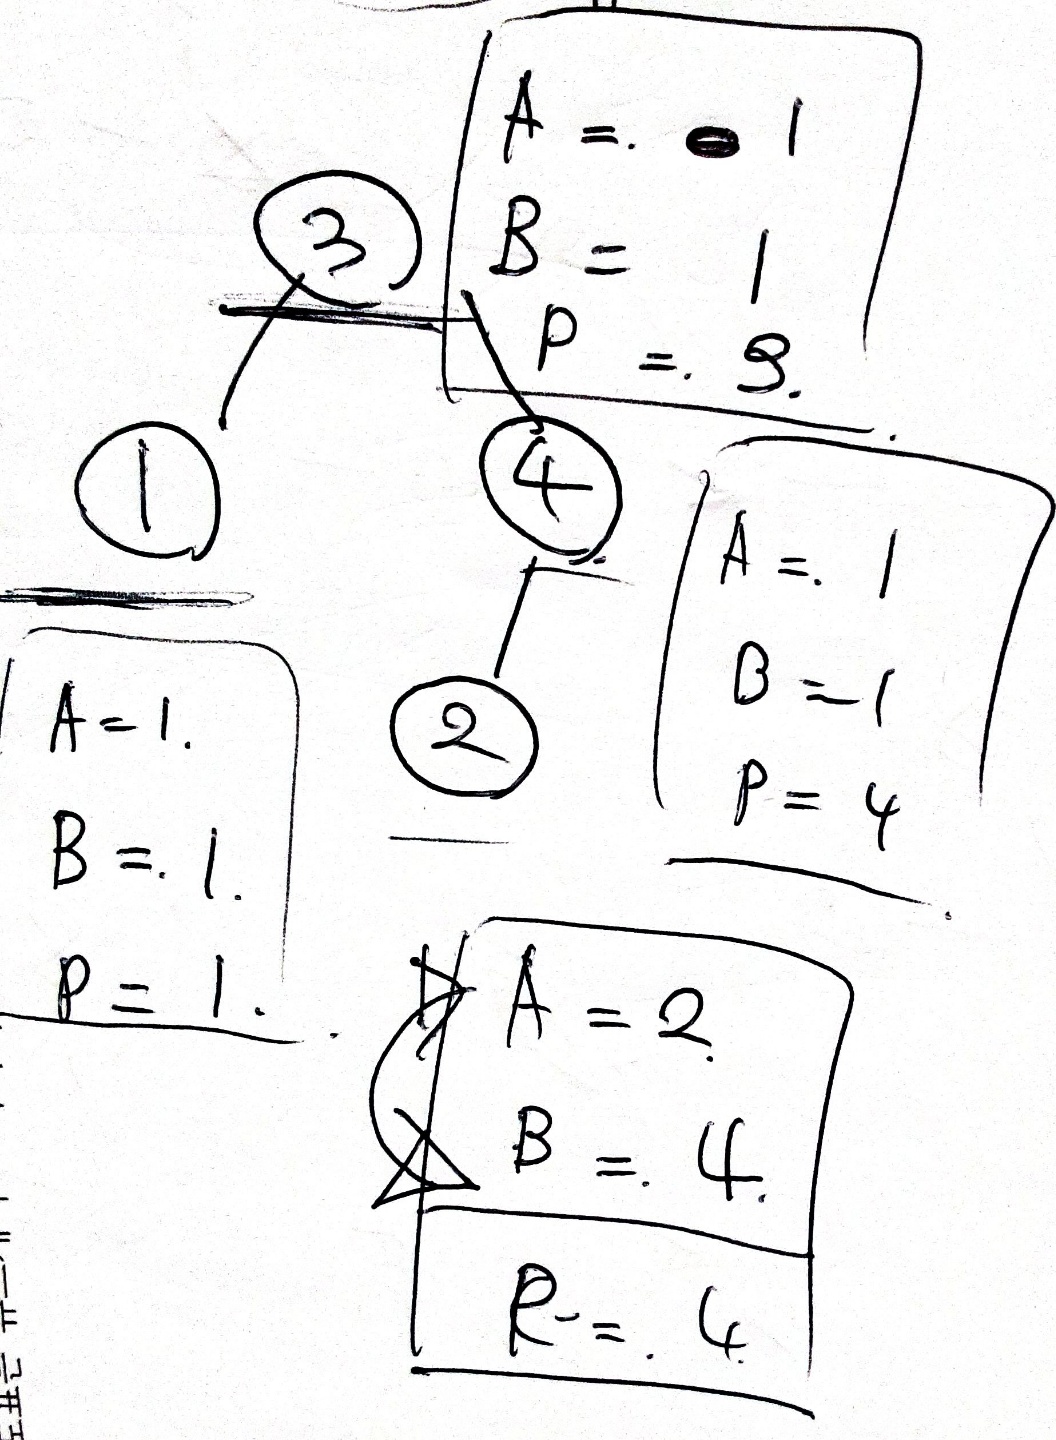 A = 1
3
B = 1
P = 3.
1
4
A = 1
B = 1
P = 4
A = 1.
2
B = 1.
P = 1.
A = 2
B = 4
R = 4